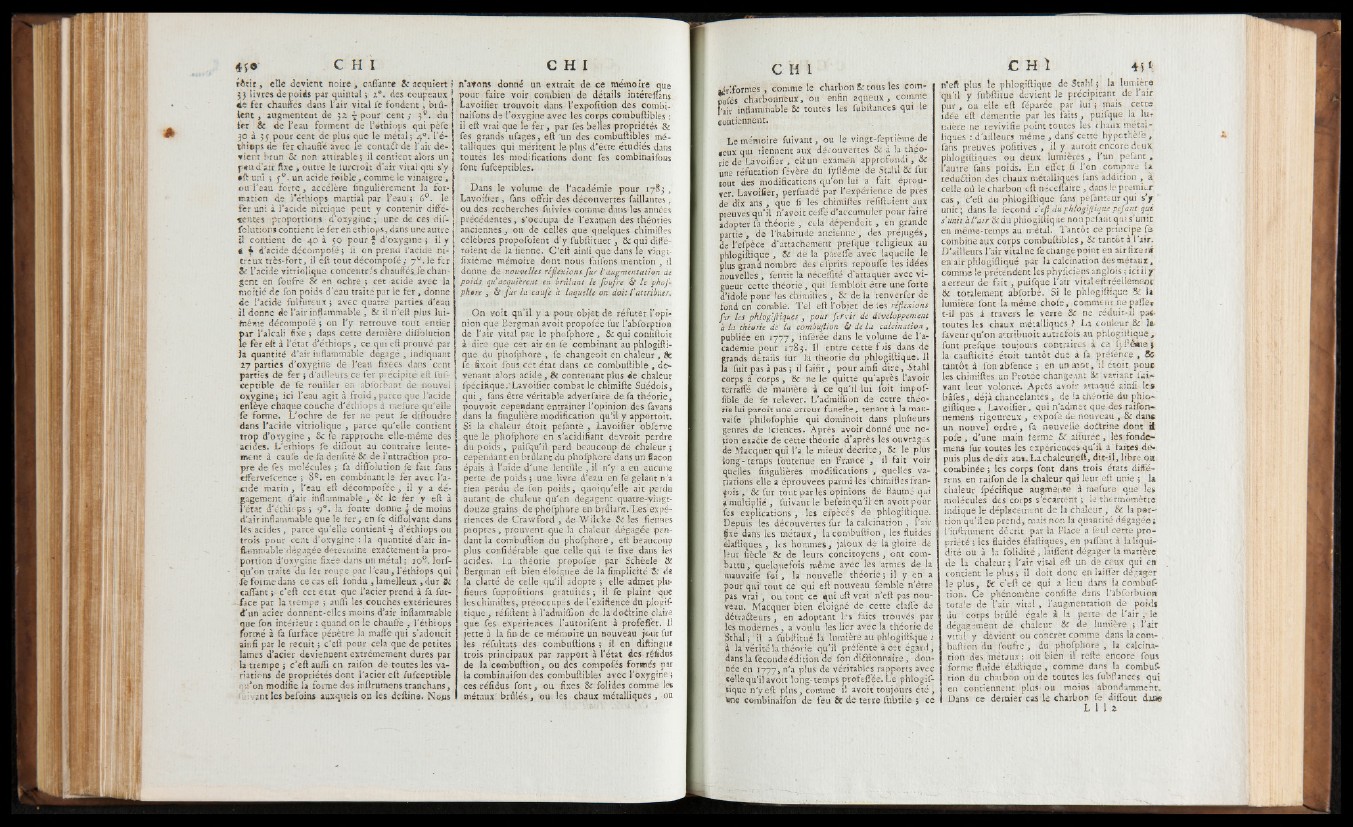 450 C H I C H I
rôtir, elle devient noire, cassante & acquiert
33 livres de poids par quintal ; 2°. des coupeaux
de fer chauffés dans l'air vital se fondent, brû-
lent, augmentent de 32 ½ pour cent ; 3°. du
fer & de l'eau forment de l'éthiops qui pèse
30 à 35 pour cent de plus que le métal ; 4°. l'é-
thiops de fer chauffé avec le contact de l'air de-
vient brun & non attirable ; il contient alors un
peu d'air fixe, outre le surcroît d'air vital qui s'y
est uni ; 5°. un acide foible, comme le vinaigre,
ou l'eau forte, accélère singulièrement la for-
mation de l'éthiops martial par l'eau ; 6°. le
fer uni à l'acide nitrique peut y contenir diffé-
rentes proportions d'oxygine ; une de ces dis-
solutions contient le fer en éthiops, dans une autre
il contient de 40 à 50 pour d'oxygine ; il y
a d'acide décomposé ; si on prend l'acide ni-
treux très-fort, il est tout décomposé ; 7°. le fer
& l'acide vitriolique concentrés chauffés, se chan-
gent en soufre & en ochre ; cet acide avec la
moitié de son poids d'eau traité par le fer, donne
de l'acide sulfureux ; avec quatre parties d'eau
il donne de l'air inflammable, & il n'est plus lui-
même décomposé ; on l'y retrouve tout entier
par l'alcali fixe ; dans cette dernière dissolution
le fer est à l'état d'éthiops, ce qui est prouvé par
la quantité d'air inflammable dégagé, indiquant
27 parties d'oxygine de l'eau fixées dans cent
parties de fer ; d'ailleurs ce fer précipité est sus-
ceptible de se rouiller en absorbant de nouvel
oxygine ; ici l'eau agit à froid, parce que l'acide
enlève chaque couche d'éthiops à mesure qu'elle
se forme. L'ochre de fer ne peut se dissoudre
dans l'acide vitriolique, parce qu'elle contient
trop d'oxygine, & se rapproche elle-même des
acides. L'éthiops se dissout au contraire lente-
ment à cause de sa densité & de l'attraction pro-
pre de ses molécules ; sa dissolution se fait sans
effervescence ; 8°. en combinant le fer avec l'a-
cide marin, l'eau est décomposée, il y a dé-
gagement d'air inflammable, & le fer y est à
l'état d'éthiops ; 9°. la fonte donne de moins
d'air inflammable que le fer ; en se dissolvant dans
les acides, parce qu'elle contient d'éthiops ou
trois pour cent d'oxygine : la quantité d'air in-
flammable dégagée détermine exactement la pro-
portion d'oxygine fixée dans un métal ; 10°. lors-
qu'on traite du fer rouge par l'eau, l'éthiops qui
se forme dans ce cas est fondu, lamelleux, dur &
cassant ; c'est cet état que l'acier prend à sa sur-
face par la trempe ; aussi les couches extérieures
d'un acier donnent-elles moins d'air inflammable
que son intérieur : quand on le chauffe, l'éthiops
formé à sa surface pénètre la masse qui s'adoucit
ainsi par le recuit ; c'est pour cela que de petites
lames d'acier deviennent extrêmement dures par
la trempe ; c'est aussi en raison de toutes les va-
riations de propriétés dont l'acier est susceptible
qu'on modifie la forme des instrumens tranchans,
suivant les besoins auxquels on les destine. Nous
n'avons donné un extrait de ce mémoire que
pour faire voir combien de détails intéressans
Lavoisier trouvoit dans l'exposition des combi-
naisons de l'oxygine avec les corps combustibles :
il est vrai que le fer, par ses belles propriétés &
ses grands usages, est un des combustibles mé-
talliques qui méritent le plus d'être étudiés dans
toutes les modifications dont ses combinaisons
sont susceptibles.
Dans le volume de l'académie pour 1783,
Lavoisier, sans offrir des découvertes saillantes,
ou des recherches suivies comme dans les années
précédentes, s'occupa de l'examen des théories
anciennes, ou de celles que quelques chimistes
célèbres proposoient d'y substituer, & qui diffé-
roient de la sienne. C'est ainsi que dans le vingt-
sixième mémoire dont nous faisons mention, il
donne de nouvelles réflexions sur l'augmentation de
poids qu'acquièrent en brûlant le soufre & le phos-
phore, & sur la cause à laquelle on doit l'attribuer.
On voit qu'il y a pour objet de réfuter l'opi-
nion que Bergman avoit proposée sur l'absorption
de l'air vital par le phosphore, & qui consistoit
à dire que cet air en se combinant au phlogisti-
que du phosphore, se changeoit en chaleur, &
se fixoit sous cet état dans ce combustible, de-
venant alors acide, & contenant plus de chaleur
spécifique. Lavoisier combat le chimiste Suédois,
qui, sans être véritable adversaire de sa théorie,
pouvoit cependant entraîner l'opinion des savans
dans la singulière modification qu'il y apportoit.
Si la chaleur étoit pesante, Lavoisier observe
que le phosphore en s'acidifiant devroit perdre
du poids, puisqu'il perd beaucoup de chaleur ;
cependant en brûlant du phosphore dans un flacon
épais à l'aide d'une lentille, il n'y a eu aucune
perte de poids ; une livre d'eau en se gelant n'a
rien perdu de son poids, quoiqu'elle ait perdu
autant de chaleur qu'en dégagent quatre-vingt-
douze grains de phosphore en brûlant. Les expé-
riences de Crawford, de Wilcke & les siennes
propres, prouvent que la chaleur dégagée pen-
dant la combustion du phosphore, est beaucoup
plus considérable que celle qui se fixe dans les
acides. La théorie proposée par Schéele &
Bergman est bien éloignée de la simplicité & de
la clarté de celle qu'il adopte ; elle admet plu-
sieurs suppositions gratuites ; il se plaint que
les chimistes, préoccupés de l'existence du phlogis-
tique, résistent à l'admission de la doctrine claire
que ses expériences l'autorisent à professer. Il
jette à la fin de ce mémoire un nouveau jour sur
les résultats des combustions ; il en distingue
trois principaux par rapport à l'état des résidus
de la combustion, ou des composés formés par
la combinaison des combustibles avec l'oxygine ;
ces résidus sont, ou fixes & solides comme les
métaux brûlés, ou les chaux métalliques, ou
C H I C H I 451
aériformes, comme le charbon & tous les com-
posés charbonneux, ou enfin aqueux, comme
l'air inflammable & toutes les substances qui le
contiennent.
Le mémoire suivant, ou le vingt-septième de
ceux qui tiennent aux découvertes & à la théo-
rie de Lavoisier, est un examen approfondi, &
une réfutation sévère du systême de Stahl & sur
tout des modifications qu'on lui a fait éprou-
ver. Lavoisier, persuadé par l'expérience de près
de dix ans, que si les chimistes résistoient aux
preuves qu'il n'avoit cessé d'accumuler pour faire
adopter sa théorie, cela dépendoit, en grande
partie, de l'habitude ancienne, des préjugés,
de l'espèce d'attachement presque religieux au
phlogistique, & de la paresse avec laquelle le
plus grand nombre des esprits repousse les idées
nouvelles, sentit la nécessité d'attaquer avec vi-
gueur cette théorie, qui sembloit être une sorte
d'idole pour les chimistes, & de la renverser de
fond en comble. Tel est l'objet de ses réflexions
sur les phlogistiques, pour servir de développement
à la théorie de la combustion & de la calcination,
publiée en 1777, insérée dans le volume de l'a-
cadémie pour 1783. Il entre cette fois dans de
grands détails sur la théorie du phlogistique. Il
la suit pas à pas ; il saisit, pour ainsi dire, Stahl
corps à corps, & ne le quitte qu'après l'avoir
terrassé de manière à ce qu'il lui soit impos-
sible de se relever. L'admission de cette théo-
rie lui paroît une erreur funeste, tenant à la mau-
vaise philosophie qui dominoit dans plusieurs
genres de sciences. Après avoir donné une no-
tion exacte de cette théorie d'après les ouvrages
de Macquer qui l'a le mieux décrite, & le plus
long-temps soutenue en France, il fait voir
quelles singulières modifications, quelles va-
riations elle a éprouvées parmi les chimistes fran-
çois, & sur tout par les opinions de Baumé qui
a multiplié, suivant le besoin qu'il en avoit pour
ses explications, les espèces de phlogistique.
Depuis les découvertes sur la calcination, l'air
fixé dans les métaux, la combustion, les fluides
élastiques, les hommes, jaloux de la gloire de
leur siècle & de leurs concitoyens, ont com-
battu, quelquefois même avec les armes de la
mauvaise foi, la nouvelle théorie ; il y en a
pour qui tout ce qui est nouveau semble n'être
pas vrai, ou tout ce qui est vrai n'est pas nou-
veau. Macquer bien éloigné de cette classe de
détracteurs, en adoptant les faits trouvés par
les modernes, a voulu les lier avec la théorie de
Sthal ; il a substitué la lumière au phlogistique :
à la vérité la théorie qu'il présente à cet égard,
dans la seconde édition de son dictionnaire, don-
née en 1777, n'a plus de véritables rapports avec
celle qu'il avoit long-temps professée. Le phlogis-
tique n'y est plus, comme il avoit toujours été,
une combinaison de feu & de terre subtile ; ce
n'est plus le phlogistique de Stahl ; la lumière
qu'il y substitue devient le précipitant de l'air
pur, ou elle est séparée par lui ; mais cette
idée est démentie par les faits, puisque la lu-
mière ne revivifie point toutes les chaux métal-
liques : d'ailleurs même, dans cette hypothèse,
sans preuves positives, il y auroit encore deux
phlogistiques ou deux lumières, l'un pesant,
l'autre sans poids. En effet si l'on compare la
réduction des chaux métalliques sans addition, à
celle où le charbon est nécessaire, dans le premier
cas, c'est du phlogistique sans pesanteur qui s'y
unit ; dans le second c'est du phlogistique pesant qui
s'unit à l'air & du phlogistique non pesant qui s'unit
en même-temps au métal. Tantôt ce principe se
combine aux corps combustibles, & tantôt à l'air.
D'ailleurs l'air vital ne se change point en air fixe ni
en air phlogistiqué par la calcination des métaux,
comme le prétendent les physiciens anglois : ici il y
a erreur de fait, puisque l'air vital est réellement
& totalement absorbé. Si le phlogistique & la
lumière sont la même chose, comment ne passe-
t-il pas à travers le verre & ne réduit-il pas
toutes les chaux métalliques ? La couleur & la
saveur qu'on attribuoit autrefois au phlogistique,
sont presque toujours contraires à ce systême ;
la causticité étoit tantôt due à sa présence, &
tantôt à son absence ; en un mot, il étoit pour
les chimistes un Protée changeant & variant sui-
vant leur volonté. Après avoir attaqué ainsi les
bâses, déjà chancelantes, de la théorie du phlo-
gistique, Lavoisier, qui n'admet que des raison-
nemens rigoureux, expose de nouveau, & dans
un nouvel ordre, sa nouvelle doctrine dont il
pose, d'une main ferme & assurée, les fonde-
mens sur toutes les expériences qu'il a faites de-
puis plus de dix ans. La chaleur est, dit-il, libre ou
combinée ; les corps sont dans trois états diffé-
rens en raison de la chaleur qui leur est unie ; la
chaleur spécifique augmente à mesure que les
molécules des corps s'écartent ; le thermomètre
indique le déplacement de la chaleur, & la por-
tion qu'il en prend, mais non la quantité dégagée ;
l'instrument décrit par la Place a seul cette pro-
priété ; les fluides élastiques, en passant à la liqui-
dité ou à la solidité, laissent dégager la matière
de la chaleur ; l'air vital est un de ceux qui en
contient le plus ; il doit donc en laisser dégager
le plus, & c'est ce qui a lieu dans la combus-
tion. Ce phénomène consiste dans l'absorbtion
totale de l'air vital, l'augmentation de poids
du corps brûlé égale à la perte de l'air, le
dégagement de chaleur & de lumière ; l'air
vital y devient ou concret comme dans la com-
bustion du soufre, du phosphore, la calcina-
tion des métaux : ou bien il reste encore sous
forme fluide élastique, comme dans la combus-
tion du charbon ou de toutes les substances qui
en contiennent plus ou moins abondamment.
Dans ce dernier cas le charbon se dissout dans
L l l 2